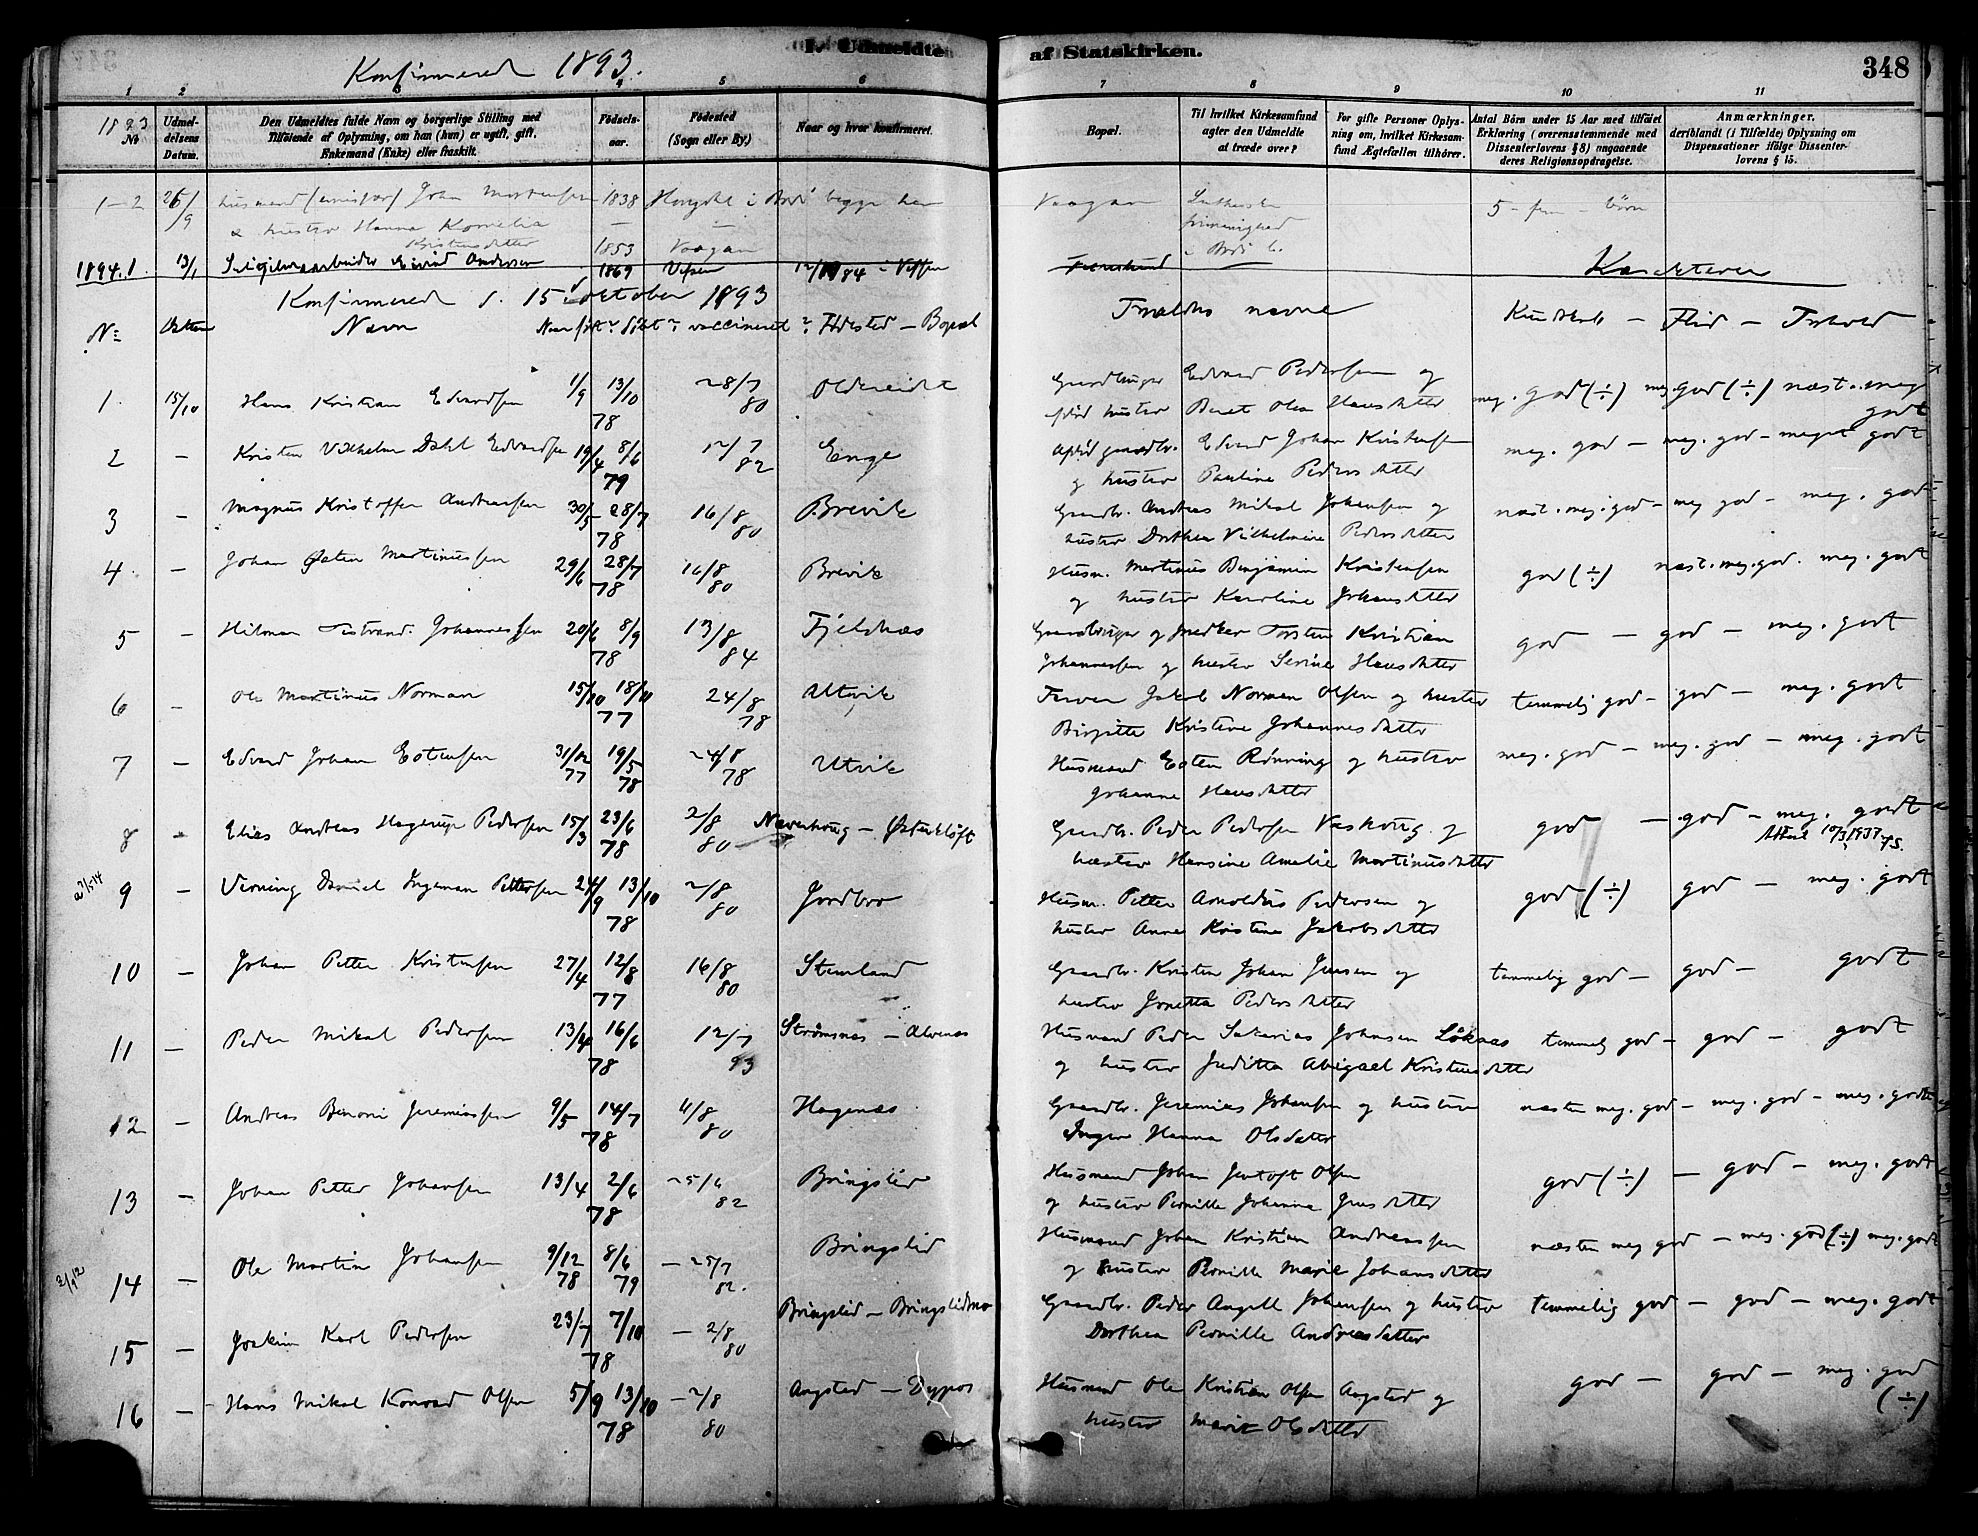 I. Udmeldte af Statskirken.
348
Konfirmered 1893.
1 2 3 4 5 6 7 8 9 10 11
1893
No
Udmel-
delsens
Datum.
Den Udmeldtes fulde Navn og borgerlige Stilling med
Tilføiende af Oplysning, om han (hun) er ugift, gift,
Enkemand (Enke) eller fraskilt.
Fødsels-
aar.
Fødested
(Sogn eller By.)
Naar og hvor konfirmeret.
Bopæl.
Til hvilket Kirkesamfund
agter den Udmeldte
at træde over?
For gifte Personer Oplys-
ning om, hvilket Kirkesam-
fund Ægtefællen tilhører.
Antal Børn under 15 Aar med tilføiet
Erklæring (overensstemmende med
Dissenterlovens § 8) angaaende
deres Religionsopdragelse.
Anmærkninger.
deriblandt (i Tilfælde) Oplysning om
Dispensationer ifølge Dissenter-
lovens § 15.
1-2 26/9 husmand Johan Mortensen 1838 i Bodø begge Vaagan Lutherske 5 - fem - børn
& hustru Hanna Kornelia frimenighed
Kristensdatter 1853 Vaagan i Bodø
1894.1. 13/1 Eivind Andersen 1869 Vefsen i Vefsen
Karakterer
Konfirmered d. 15 oktober 1893
No Datum Navn Naar født? døbt? vaccineret? Fødested - Bopæl Forældres navne Kundskab - Flid - Forhold
1. 15/10 Hans Kristian Edvardsen 1/9 13/10 78 28/7 80 Oldereidet Gaardbruger Edvard Pedersen og
hustru Beret Olea Hansdatter meg. god (÷) meg. god (÷) næst. meg godt
2 - Kristen Vilhelm Dahl Edvardsen 19/4 8/6 79 12/7 82 Enge gaardbr. Edvard Johan Kristensen
og hustru Pauline Pedersdatter meg. god - meg. god - meget godt
3 - Magnus Kristoffer Andreassen 30/5 28/7 78 16/8 80 Brevik Gaardbr. Andreas Mikal Johansen og
hustru Dorthea Vilhelmine Pedersdatter næst. meg. god - meg god - meg. godt
4 - Johan Østen Martinussen 29/6 28/7 78 16/8 80 Brevik Husm. Martinus Benjamin Kristensen
og hustru Karoline Johansdatter god (÷) næst. meg. god. meg. godt
5 - Hilman Johannessen 20/6 8/9 78 13/8 84 Fjelsnes Gaardbruger og snedker Torsten Kristian
Johannessen og hustru Serine Hansdatter god - god - meg. godt
6 - Ole Martinus Norman 15/10 18/11 77 24/8 78 Utvik Jakob Norman Olsen og hustru
Birgitte Kristine Johannesdatter temmelig god - god - meg. godt
7 - Edvard Johan Estensen 31/12 77 19/5 78 24/8 78 Utvik Husmand Esten Rønning og hustru
Johanna Hansdatter meg. god - meg. god - meg. godt
8 - Elias Andreas Hagerup Pedersen 15/3 23/6 78 2/8 80 Neverhoug - Østerkløft Gaardbr. Peder Pedersen og
hustru Hansine Amalie Martinusdatter god - god - meg. godt
Attest 10/3 1937
9 - Verning Daniel Ingeman Pettersen 24/9 13/10 78 2/8 80 Jordbro Husm. Petter Arnoldus Pedersen og
hustru Anne Kristine Jakobsdatter god (÷) god - meg. godt
10 - Johan Petter Kristensen 27/4 12/8 77 16/8 80 Stemland Gaardbr. Kristen Johan Jensen og
hustru Jonetta Pedersdatter temmelig god - god - godt
11 - Peder Mikal Pedersen 13/4 16/6 78 12/7 93 Strømsnes - Alvenes Husmand Peder Sakarias Johnsen Løknes
og hustru Juditta Abigael Kristensdatter temmelig god - god - godt
12 - Andreas Benoni Jeremiassen 9/5 14/7 78 11/8 80 Hagenes Gaardbr. Jeremias Johansen og hustru
Inger Hanna Olsdatter næsten meg. god - meg. god - meg. godt
13 - Johan Petter Johansen 13/4 2/6 78 25/6 82 Bringslid Husmand Johan Jentoft Olsen
og hustru Pernille Johanna Jensdatter god (÷) - god - meg. godt
14 - Ole Martin Johansen 9/12 78 8/6 79 - 25/7 82. Bringslid Husmand Johan Kristian Andreassen
og hustru Pernille Marie Johansdatter næsten meg god - meg. god (÷) meg. godt
15 - Joakim Karl Pedersen 23/7 7/10 78 - 2/8 80 Bringslid - Bringslidmo Gaardbr. Peder Angell Johansen og hustru
Dorthea Pernille Andreasdatter temmelig god - god - meg. godt
16 - Hans Mikal Konrad Olsen 5/9 13/10 78 - 2/8 80 Angsted - Dypos Husmand Ole Kristian Olsen Angsted og
hustru Marit Olsdatter god - god - meg. god (÷)